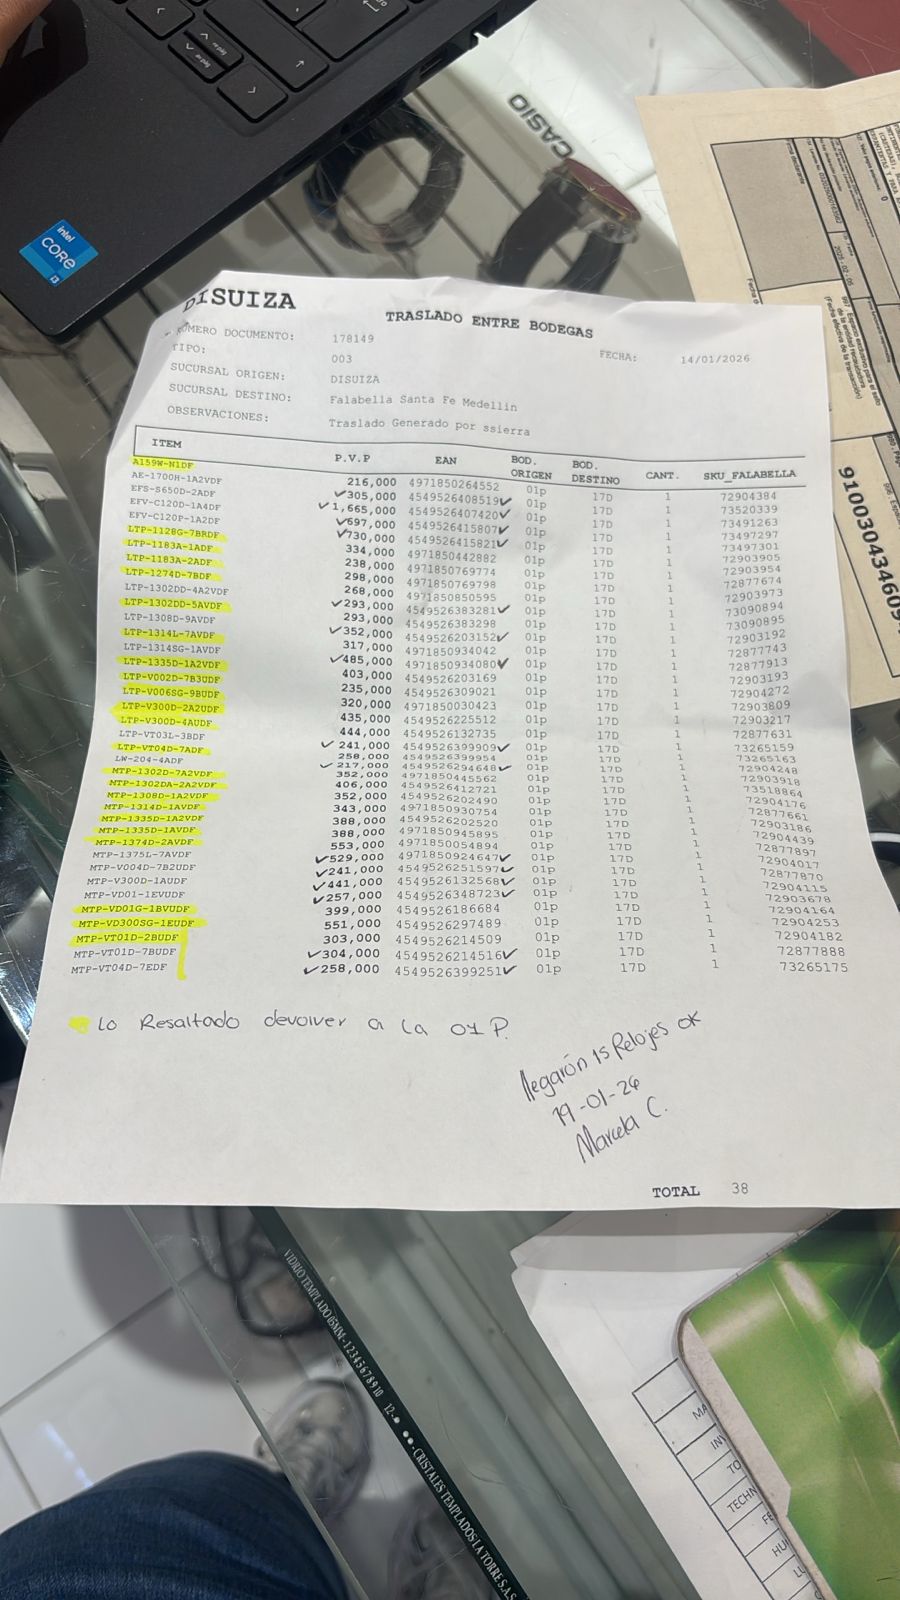 intel
CORE
i3
CASIO
910030434609
DISUIZA
TRASLADO ENTRE BODEGAS
NÚMERO DOCUMENTO: 178149 FECHA: 14/01/2026
TIPO: 003
SUCURSAL ORIGEN: DISUIZA
SUCURSAL DESTINO: Falabella Santa Fe Medellin
OBSERVACIONES: Traslado Generado por ssierra
ITEM P.V.P EAN BOD. ORIGEN BOD. DESTINO CANT. SKU_FALABELLA
A159W-N1DF 216,000 4971850264552 01p 17D 1 72904384
AE-1700H-1A2VDF ✓305,000 4549526408519✓ 01p 17D 1 73520339
EFS-S650D-2ADF ✓1,665,000 4549526407420✓ 01p 17D 1 73491263
EFV-C120D-1A4DF ✓697,000 4549526415807✓ 01p 17D 1 73497297
EFV-C120P-1A2DF ✓730,000 4549526415821✓ 01p 17D 1 73497301
LTP-1128G-7BRDF 334,000 4971850442882 01p 17D 1 72903905
LTP-1183A-1ADF 238,000 4971850769774 01p 17D 1 72903954
LTP-1183A-2ADF 298,000 4971850769798 01p 17D 1 72877674
LTP-1274D-7BDF 268,000 4971850850595 01p 17D 1 72903973
LTP-1302DD-4A2VDF ✓293,000 4549526383281✓ 01p 17D 1 73090894
LTP-1302DD-5AVDF 293,000 4549526383298 01p 17D 1 73090895
LTP-1308D-9AVDF ✓352,000 4549526203152✓ 01p 17D 1 72903192
LTP-1314L-7AVDF 317,000 4971850934042 01p 17D 1 72877743
LTP-1314SG-1AVDF ✓485,000 4971850934080✓ 01p 17D 1 72877913
LTP-1335D-1A2VDF 403,000 4549526203169 01p 17D 1 72903193
LTP-V002D-7B3UDF 235,000 4549526309021 01p 17D 1 72904272
LTP-V006SG-9BUDF 320,000 4971850030423 01p 17D 1 72903809
LTP-V300D-2A2UDF 435,000 4549526225512 01p 17D 1 72903217
LTP-V300D-4AUDF 444,000 4549526132735 01p 17D 1 72877631
LTP-VT03L-3BDF ✓241,000 4549526399909✓ 01p 17D 1 73265159
LTP-VT04D-7ADF 258,000 4549526399954 01p 17D 1 73265163
LW-204-4ADF ✓217,000 4549526294648✓ 01p 17D 1 72904248
MTP-1302D-7A2VDF 352,000 4971850445562 01p 17D 1 72903918
MTP-1302DA-2A2VDF 406,000 4549526412721 01p 17D 1 73518864
MTP-1308D-1A2VDF 352,000 4549526202490 01p 17D 1 72904176
MTP-1314D-1AVDF 343,000 4971850930754 01p 17D 1 72877661
MTP-1335D-1A2VDF 388,000 4549526202520 01p 17D 1 72903186
MTP-1335D-1AVDF 388,000 4971850945895 01p 17D 1 72904439
MTP-1374D-2AVDF 553,000 4971850054894 01p 17D 1 72877897
MTP-1375L-7AVDF ✓529,000 4971850924647✓ 01p 17D 1 72904017
MTP-V004D-7B2UDF ✓241,000 4549526251597✓ 01p 17D 1 72877870
MTP-V300D-1AUDF ✓441,000 4549526132568✓ 01p 17D 1 72904115
MTP-VD01-1EVUDF ✓257,000 4549526348723✓ 01p 17D 1 72903678
MTP-VD01G-1BVUDF 399,000 4549526186684 01p 17D 1 72904164
MTP-VD300SG-1EUDF 551,000 4549526297489 01p 17D 1 72904253
MTP-VT01D-2BUDF 303,000 4549526214509 01p 17D 1 72904182
MTP-VT01D-7BUDF ✓304,000 4549526214516✓ 01p 17D 1 72877888
MTP-VT04D-7EDF ✓258,000 4549526399251✓ 01p 17D 1 73265175
Lo Resaltado devolver a la 01P.
llegarón 15 Relojes ok
19-01-26
Marcela C.
TOTAL 38
VIDRIO TEMPLADO 05MM-12345678910 12-
CRISTALES TEMPLADOS LA TORRE S.A.S.
MA
INV
TO
TECHN
FE
HU